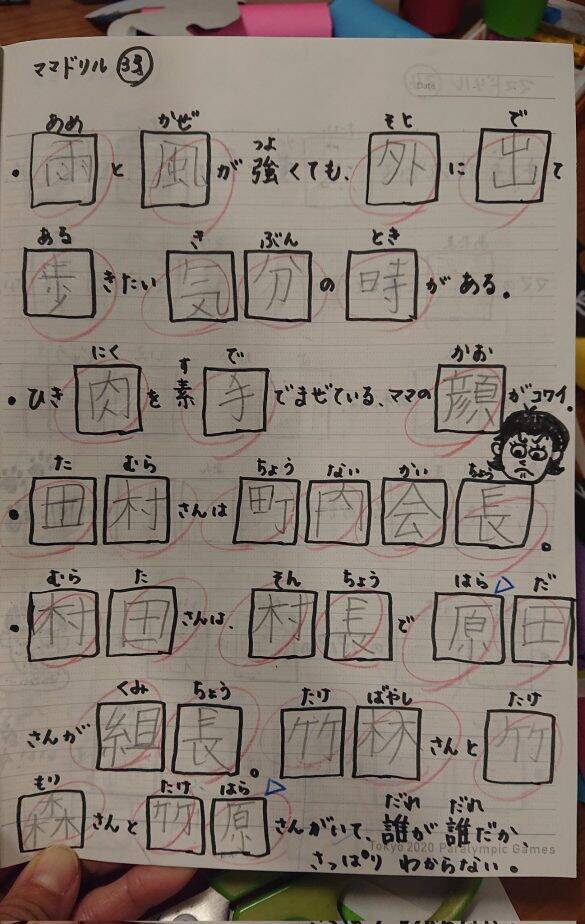 ママドリル 38
あめ かぜ つよ そと で
・雨と風が強くても、外に出て
ある き ぶん とき
歩きたい気分の時がある。
にく す で かお
・ひき肉を素手でまぜている、ママの顔がコワイ。
た むら ちょう ない かい ちょう
・田村さんは町内会長。
むら た そん ちょう はら だ
・村田さんは、村長で原田
くみ ちょう たけ ばやし たけ
さんが組長。竹林さんと竹
もり たけ はら だれ だれ
森さんと竹原さんがいて、誰が誰だか、
Tokyo 2020 Paralympic Games
さっぱり わからない。